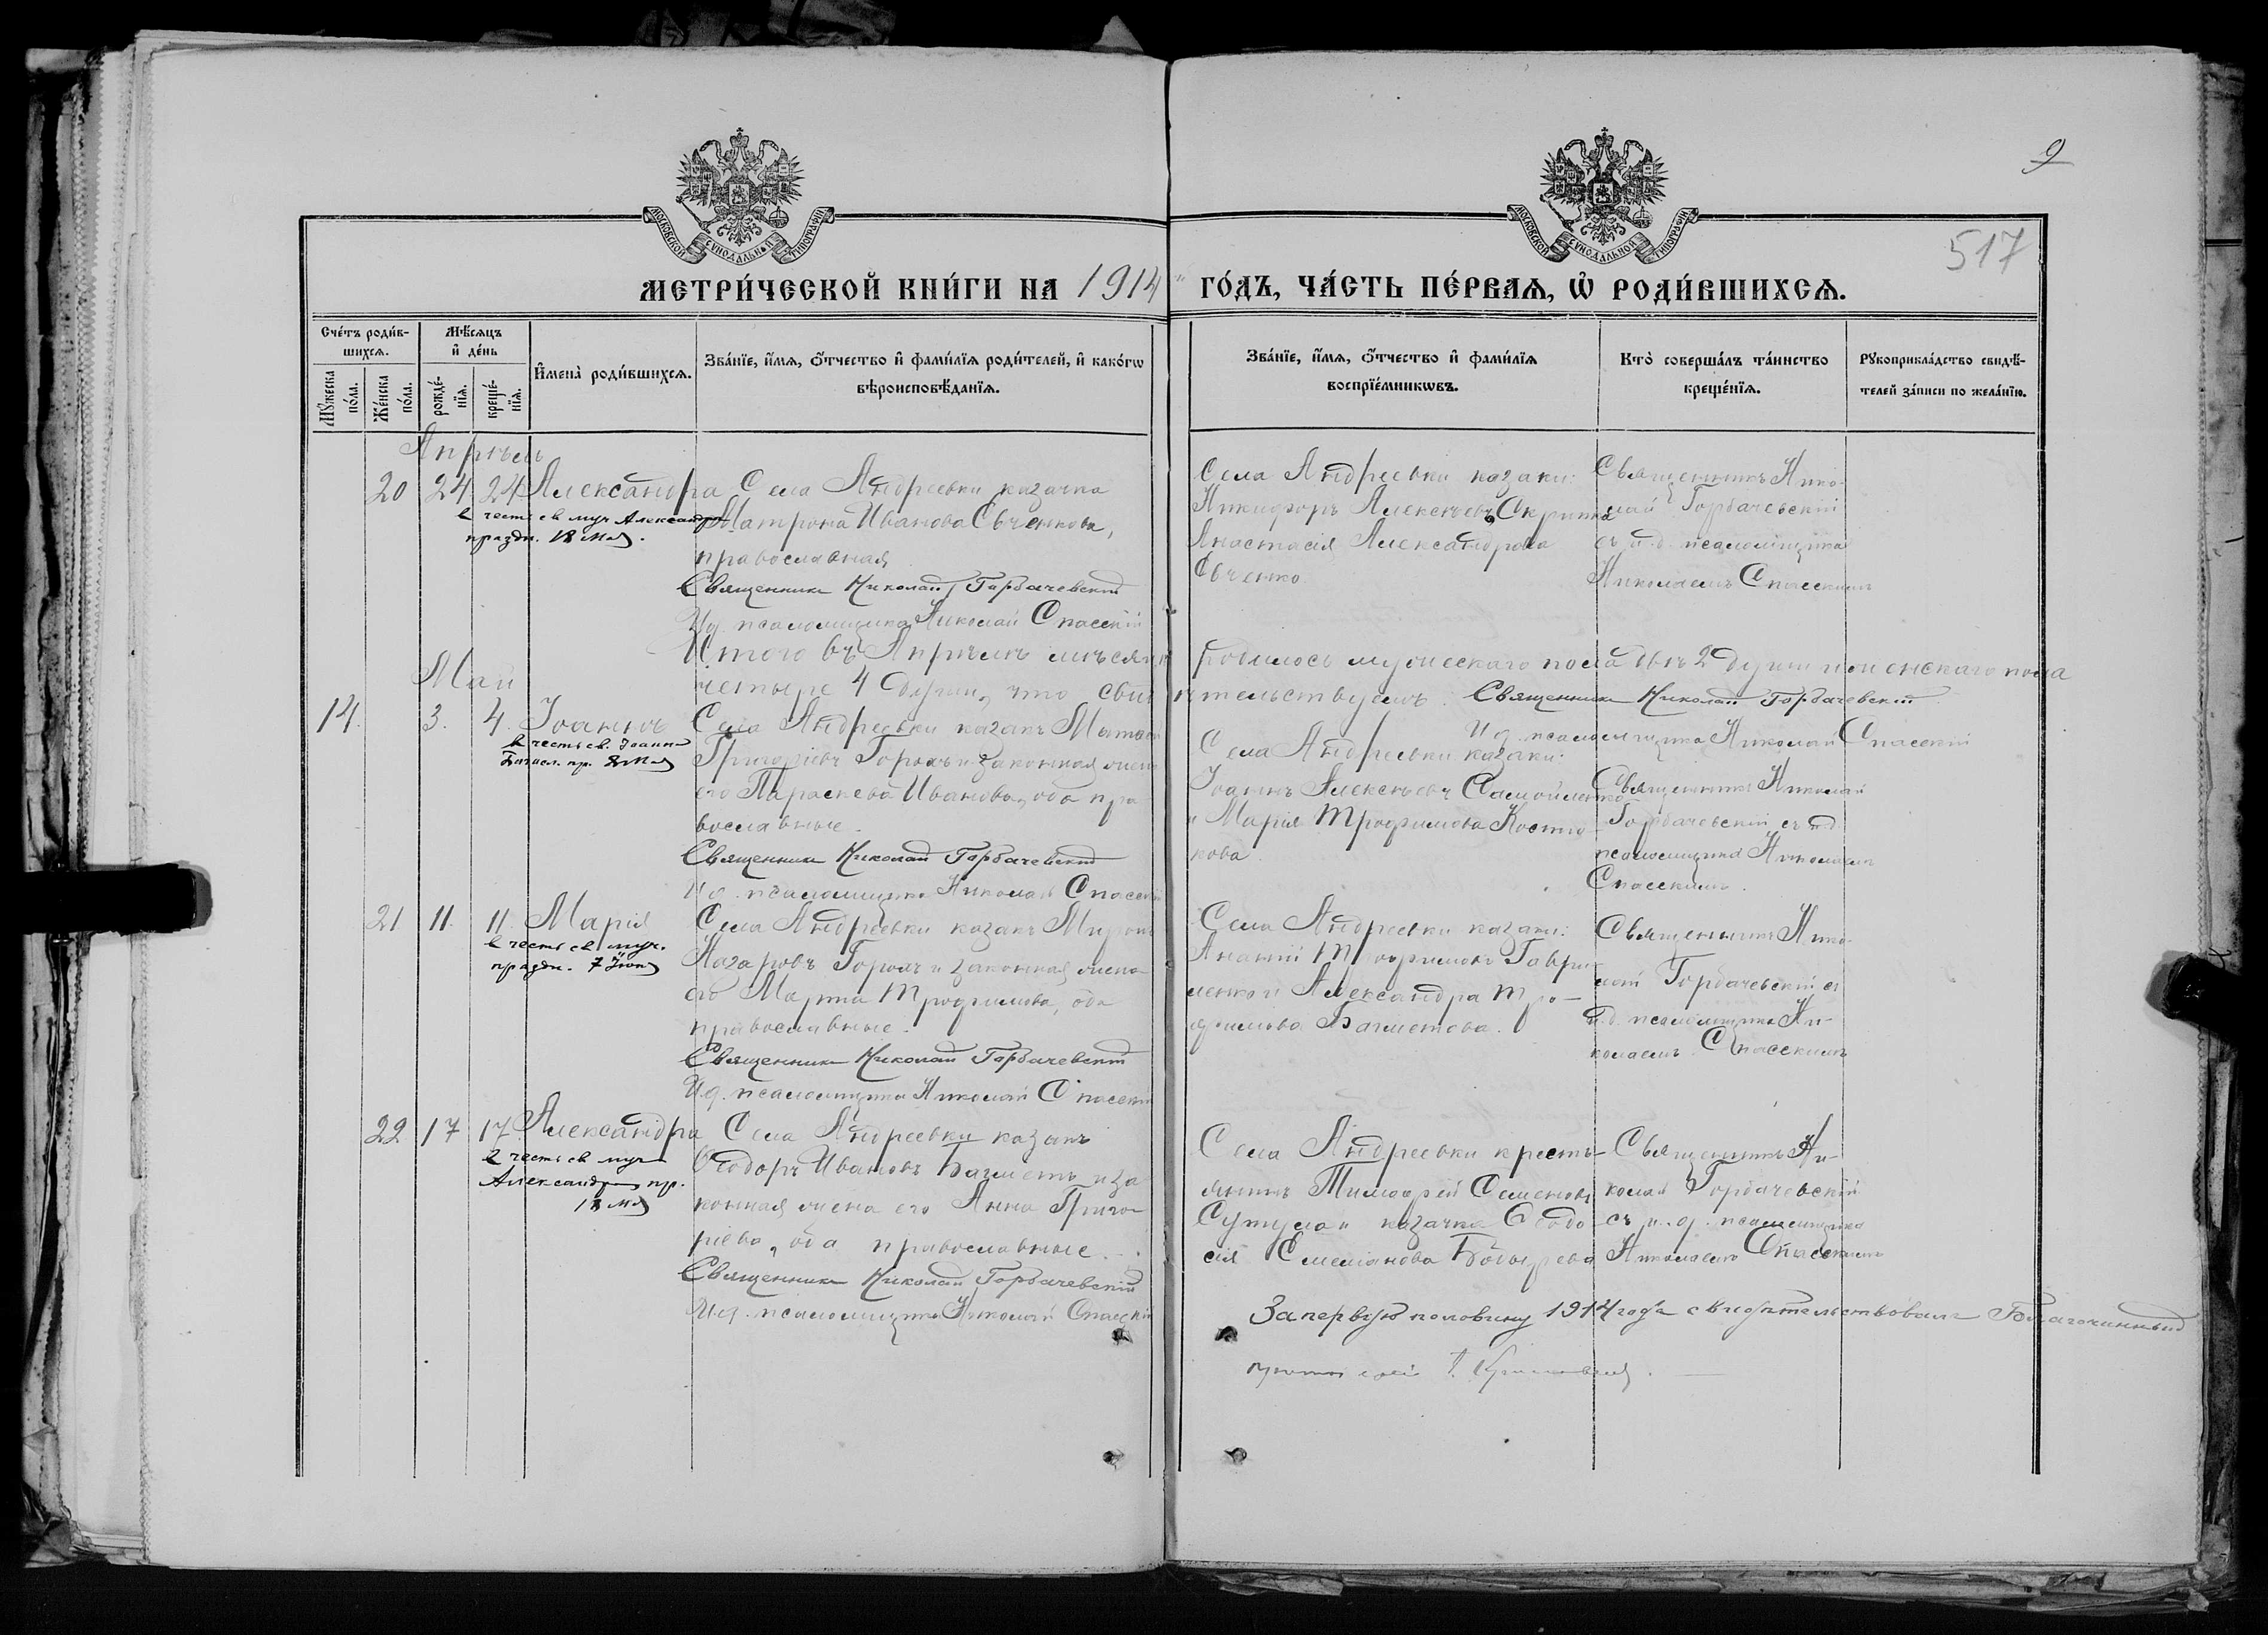 9
517
МОСКОВСКОЙ СѴНОДАЛЬНОЙ ТИПОГРАФІИ
МОСКОВСКОЙ СѴНОДАЛЬНОЙ ТИПОГРАФІИ
МЕТРИ́ЧЕСКОЙ КНИ́ГИ НА 1914 ГО́ДЪ, ЧА́СТЬ ПЕ́РВАѦ, Ѡ҆ РОДИ́ВШИХСѦ.
Сче́тъ роди́в-
шихсѧ.
Мѣ́сѧцъ
и҆ де́нь
Мꙋ́жеска
по́ла.
Же́нска
по́ла.
рожде́-
нїѧ.
креще́-
нїѧ.
И҆мена̀ роди́вшихсѧ.
Зва́нїе, и҆́мѧ, ѻ҆́тчество и҆ фами́лїѧ роди́телей, и҆ како́гѡ
вѣроисповѣ́данїѧ.
Зва́нїе, и҆́мѧ, ѻ҆́тчество и҆ фами́лїѧ
воспрїе́мникѡвъ.
Кто̀ соверша́лъ та́инство
креще́нїѧ.
Рꙋкоприкла́дство свидѣ́-
телей за́писи по жела́нїю.
Апрѣль
20 24 24 Александра
в честь св муч Александры
праздн. 18 Мая.
Села Андреевки казачка
Матрона Иванова Евченкова,
православная
Священник Николай Горбачевский
И.д. псаломщика Николай Спасскій
Села Андреевки казаки:
Никифоръ Алексѣевъ Скрипка
Анастасія Александрова
Евченко
Священникъ Нико-
лай Горбачевскій
съ и.д. псаломщика
Николаемъ Спасскимъ
Итого въ Апрѣлѣ мѣсяцѣ родилось мужескаго пола двѣ 2 души женскаго пола
четыре 4 души, что свидѣтельствуемъ. Священник Николай Горбачевский
И.д. псаломщика Николай Спасскій
Май
14. 3. 4. Іоаннъ
в честь св. Іоанна
Богосл. пр. 8 Мая
Села Андреевки казакъ
Григоріевъ Горохъ и законная жена
его Параскева Иванова, оба пра
вославные.
Священник Николай Горбачевский
И.д. псаломщика Николай Спасскій
Села Андреевки казаки:
Іоаннъ Алексѣевъ Самойленко
и Марія Трофимова Костю-
кова.
Священникъ Николай
Горбачевскій съ и.д.
псаломщика Николаемъ
Спасскимъ.
21 11. 11. Марія
в честь св муч.
праздн. 7 Іюня
Села Андреевки казакъ Миронъ
Назаровъ Горохъ и законная жена
его Марта Трофимова, оба
православные.
Священник Николай Горбачевский
И.д. псаломщика Николай Спасскій
Села Андреевки казаки:
Ананій Трофимовъ Гаври-
ленко и Александра Тро-
фимова Багметова.
Священникъ Нико-
лай Горбачевскій съ
и.д. псаломщика Ни-
колаемъ Спасскимъ
22 17 17. Александра
в честь св муч
Александры пр.
18 Мая
Села Андреевки казакъ
Ѳеодоръ Ивановъ Багметъ и за
конная жена его Анна Григо
ріева, оба православные.
Священник Николай Горбачевскій
И.д. псаломщика Николай Спасскій
Села Андреевки кресть-
янинъ Тимофей Семеновъ
казачка Ѳеодо-
сія Емеліанова
Священникъ Ни-
колай Горбачевскій
съ и. д. псаломщика
Николаемъ Спасскимъ
За первую половину 1914 года свидѣтельствовалъ Благочинный